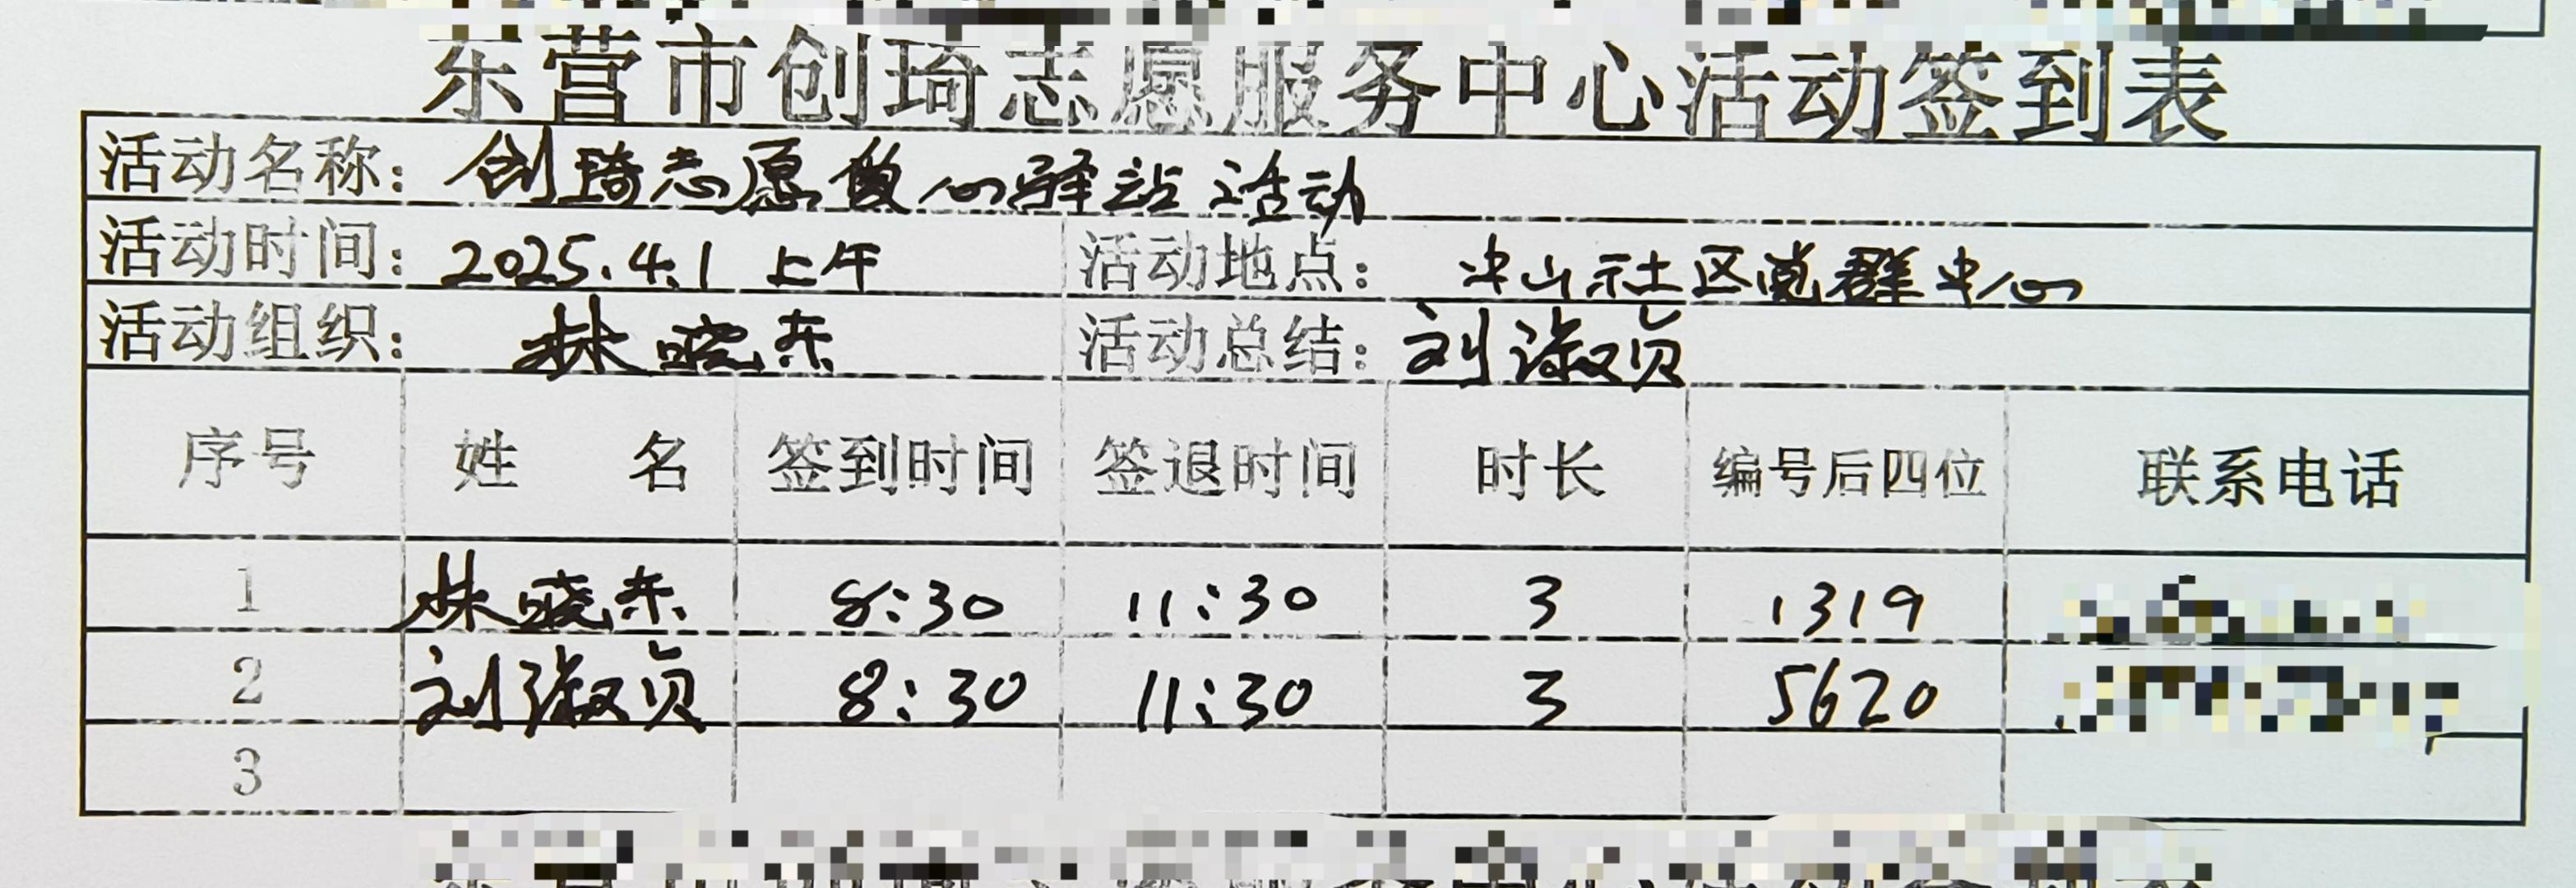 东营市创琦志愿服务中心活动签到表
活动名称： 创琦志愿食心驿站活动
活动时间： 2025.4.1 上午 活动地点： 中山社区党群中心
活动组织： 林晓东 活动总结： 刘淑贞
序号 姓 名 签到时间 签退时间 时长 编号后四位 联系电话
1 林晓东 8:30 11:30 3 1319
2 刘淑贞 8:30 11:30 3 5620
3